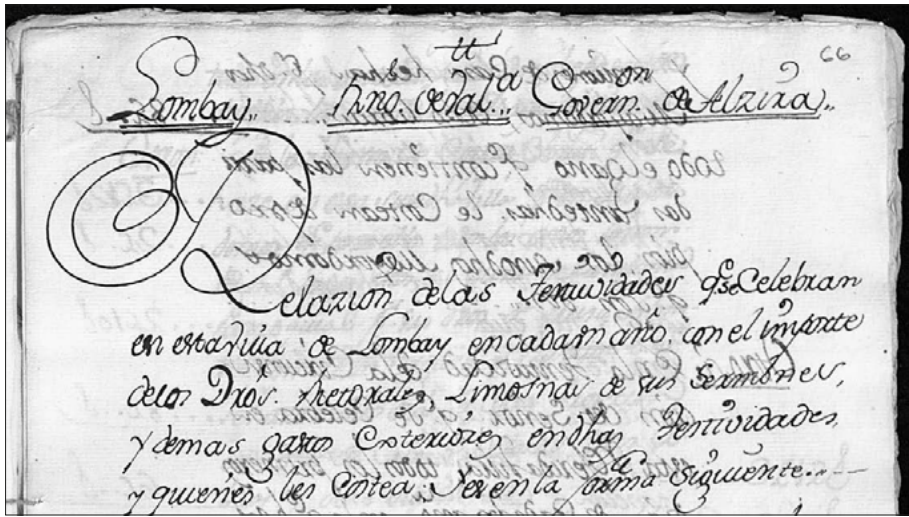 66
Lombay,, Rno. de Val.ª Govern.on de Alzira,,
Relazion de las Festividades q.e se Celebran
en esta villa de Lombay en cada un año, con el importe
de los Dros. Rhetorales, Limosnas de sus Sermones,
y demas gastos Exteriores en dhas. Festividades,
y quienes les Costea; es en la forma Siguiente.